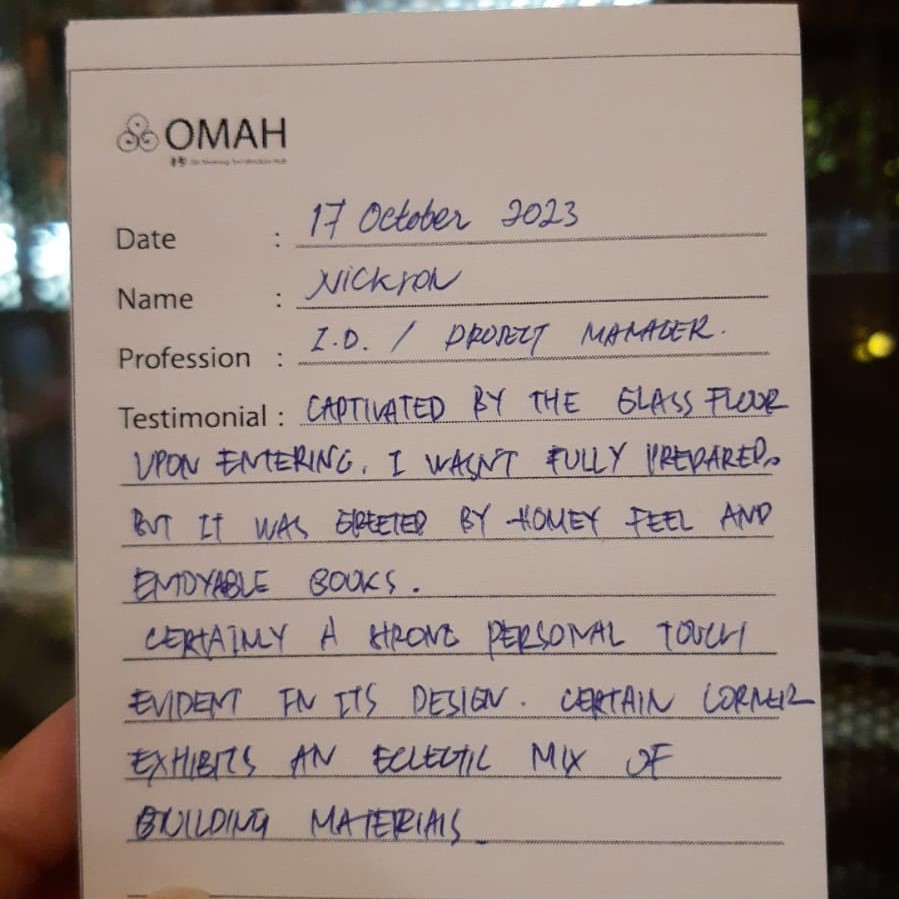 OMAH
Date : 17 October 2023
Name : Nickson
Profession : I.D. / PROJECT MANAGER.
Testimonial : CAPTIVATED BY THE GLASS FLOOR
UPON ENTERING. I WASN'T FULLY PREPARED.
BUT IT WAS GREETED BY HOMEY FEEL AND
ENJOYABLE BOOKS.
CERTAINLY A STRONG PERSONAL TOUCH
EVIDENT IN ITS DESIGN. CERTAIN CORNER
EXHIBITS AN ECLECTIC MIX OF
BUILDING MATERIALS